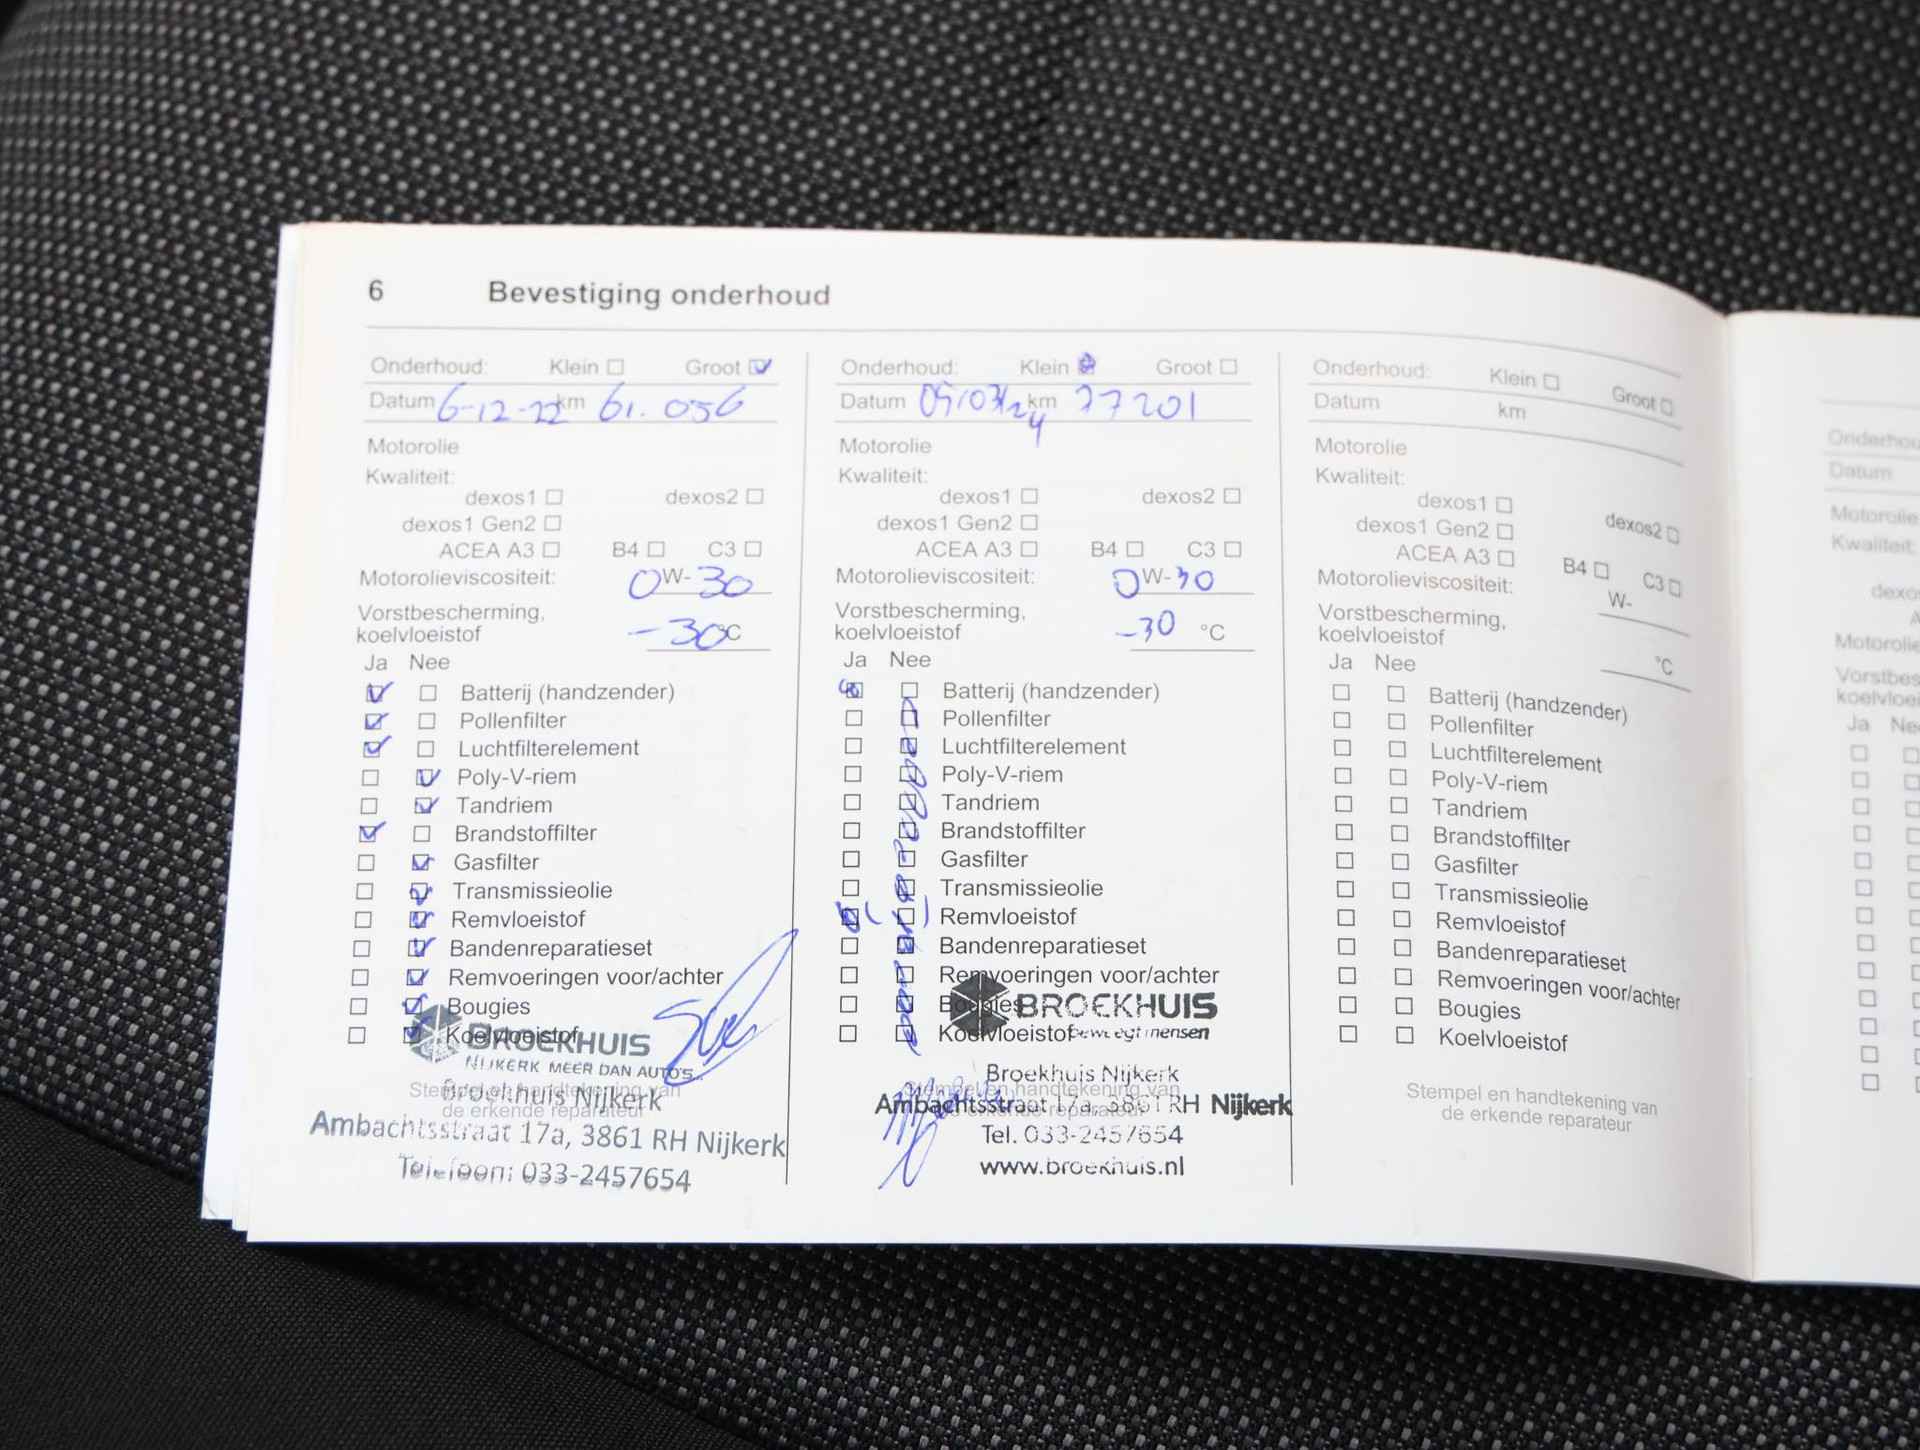 6 Bevestiging onderhoud
Onderhoud: Klein Groot
Datum 6-12-22 km 61.056
Motorolie
Kwaliteit:
dexos1 dexos2
dexos1 Gen2
ACEA A3 B4 C3
Motorolieviscositeit: 0W-30
Vorstbescherming,
koelvloeistof -30°C
Ja Nee
Batterij (handzender)
Pollenfilter
Luchtfilterelement
Poly-V-riem
Tandriem
Brandstoffilter
Gasfilter
Transmissieolie
Remvloeistof
Bandenreparatieset
Remvoeringen voor/achter
Bougies
Koelvloeistof
BROEKHUIS
NIJKERK MEER DAN AUTO'S...
Stempel en handtekening van
de erkende reparateur
Broekhuis Nijkerk
Ambachtsstraat 17a, 3861 RH Nijkerk
Telefoon: 033-2457654
Onderhoud: Klein Groot
Datum 05/03/24 km 77201
Motorolie
Kwaliteit:
dexos1 dexos2
dexos1 Gen2
ACEA A3 B4 C3
Motorolieviscositeit: 0W-30
Vorstbescherming,
koelvloeistof -30 °C
Ja Nee
Batterij (handzender)
Pollenfilter
Luchtfilterelement
Poly-V-riem
Tandriem
Brandstoffilter
Gasfilter
Transmissieolie
Remvloeistof
Bandenreparatieset
Remvoeringen voor/achter
Bougies
Koelvloeistof
BROEKHUIS
beweegt mensen
Stempel en handtekening van
de erkende reparateur
Broekhuis Nijkerk
Ambachtsstraat 17a, 3861 RH Nijkerk
Tel. 033-2457654
www.broekhuis.nl
Onderhoud: Klein Groot
Datum km
Motorolie
Kwaliteit:
dexos1 dexos2
dexos1 Gen2
ACEA A3 B4 C3
Motorolieviscositeit: W-
Vorstbescherming,
koelvloeistof °C
Ja Nee
Batterij (handzender)
Pollenfilter
Luchtfilterelement
Poly-V-riem
Tandriem
Brandstoffilter
Gasfilter
Transmissieolie
Remvloeistof
Bandenreparatieset
Remvoeringen voor/achter
Bougies
Koelvloeistof
Stempel en handtekening van
de erkende reparateur
Datum
Motorolie
Kwaliteit:
Ja